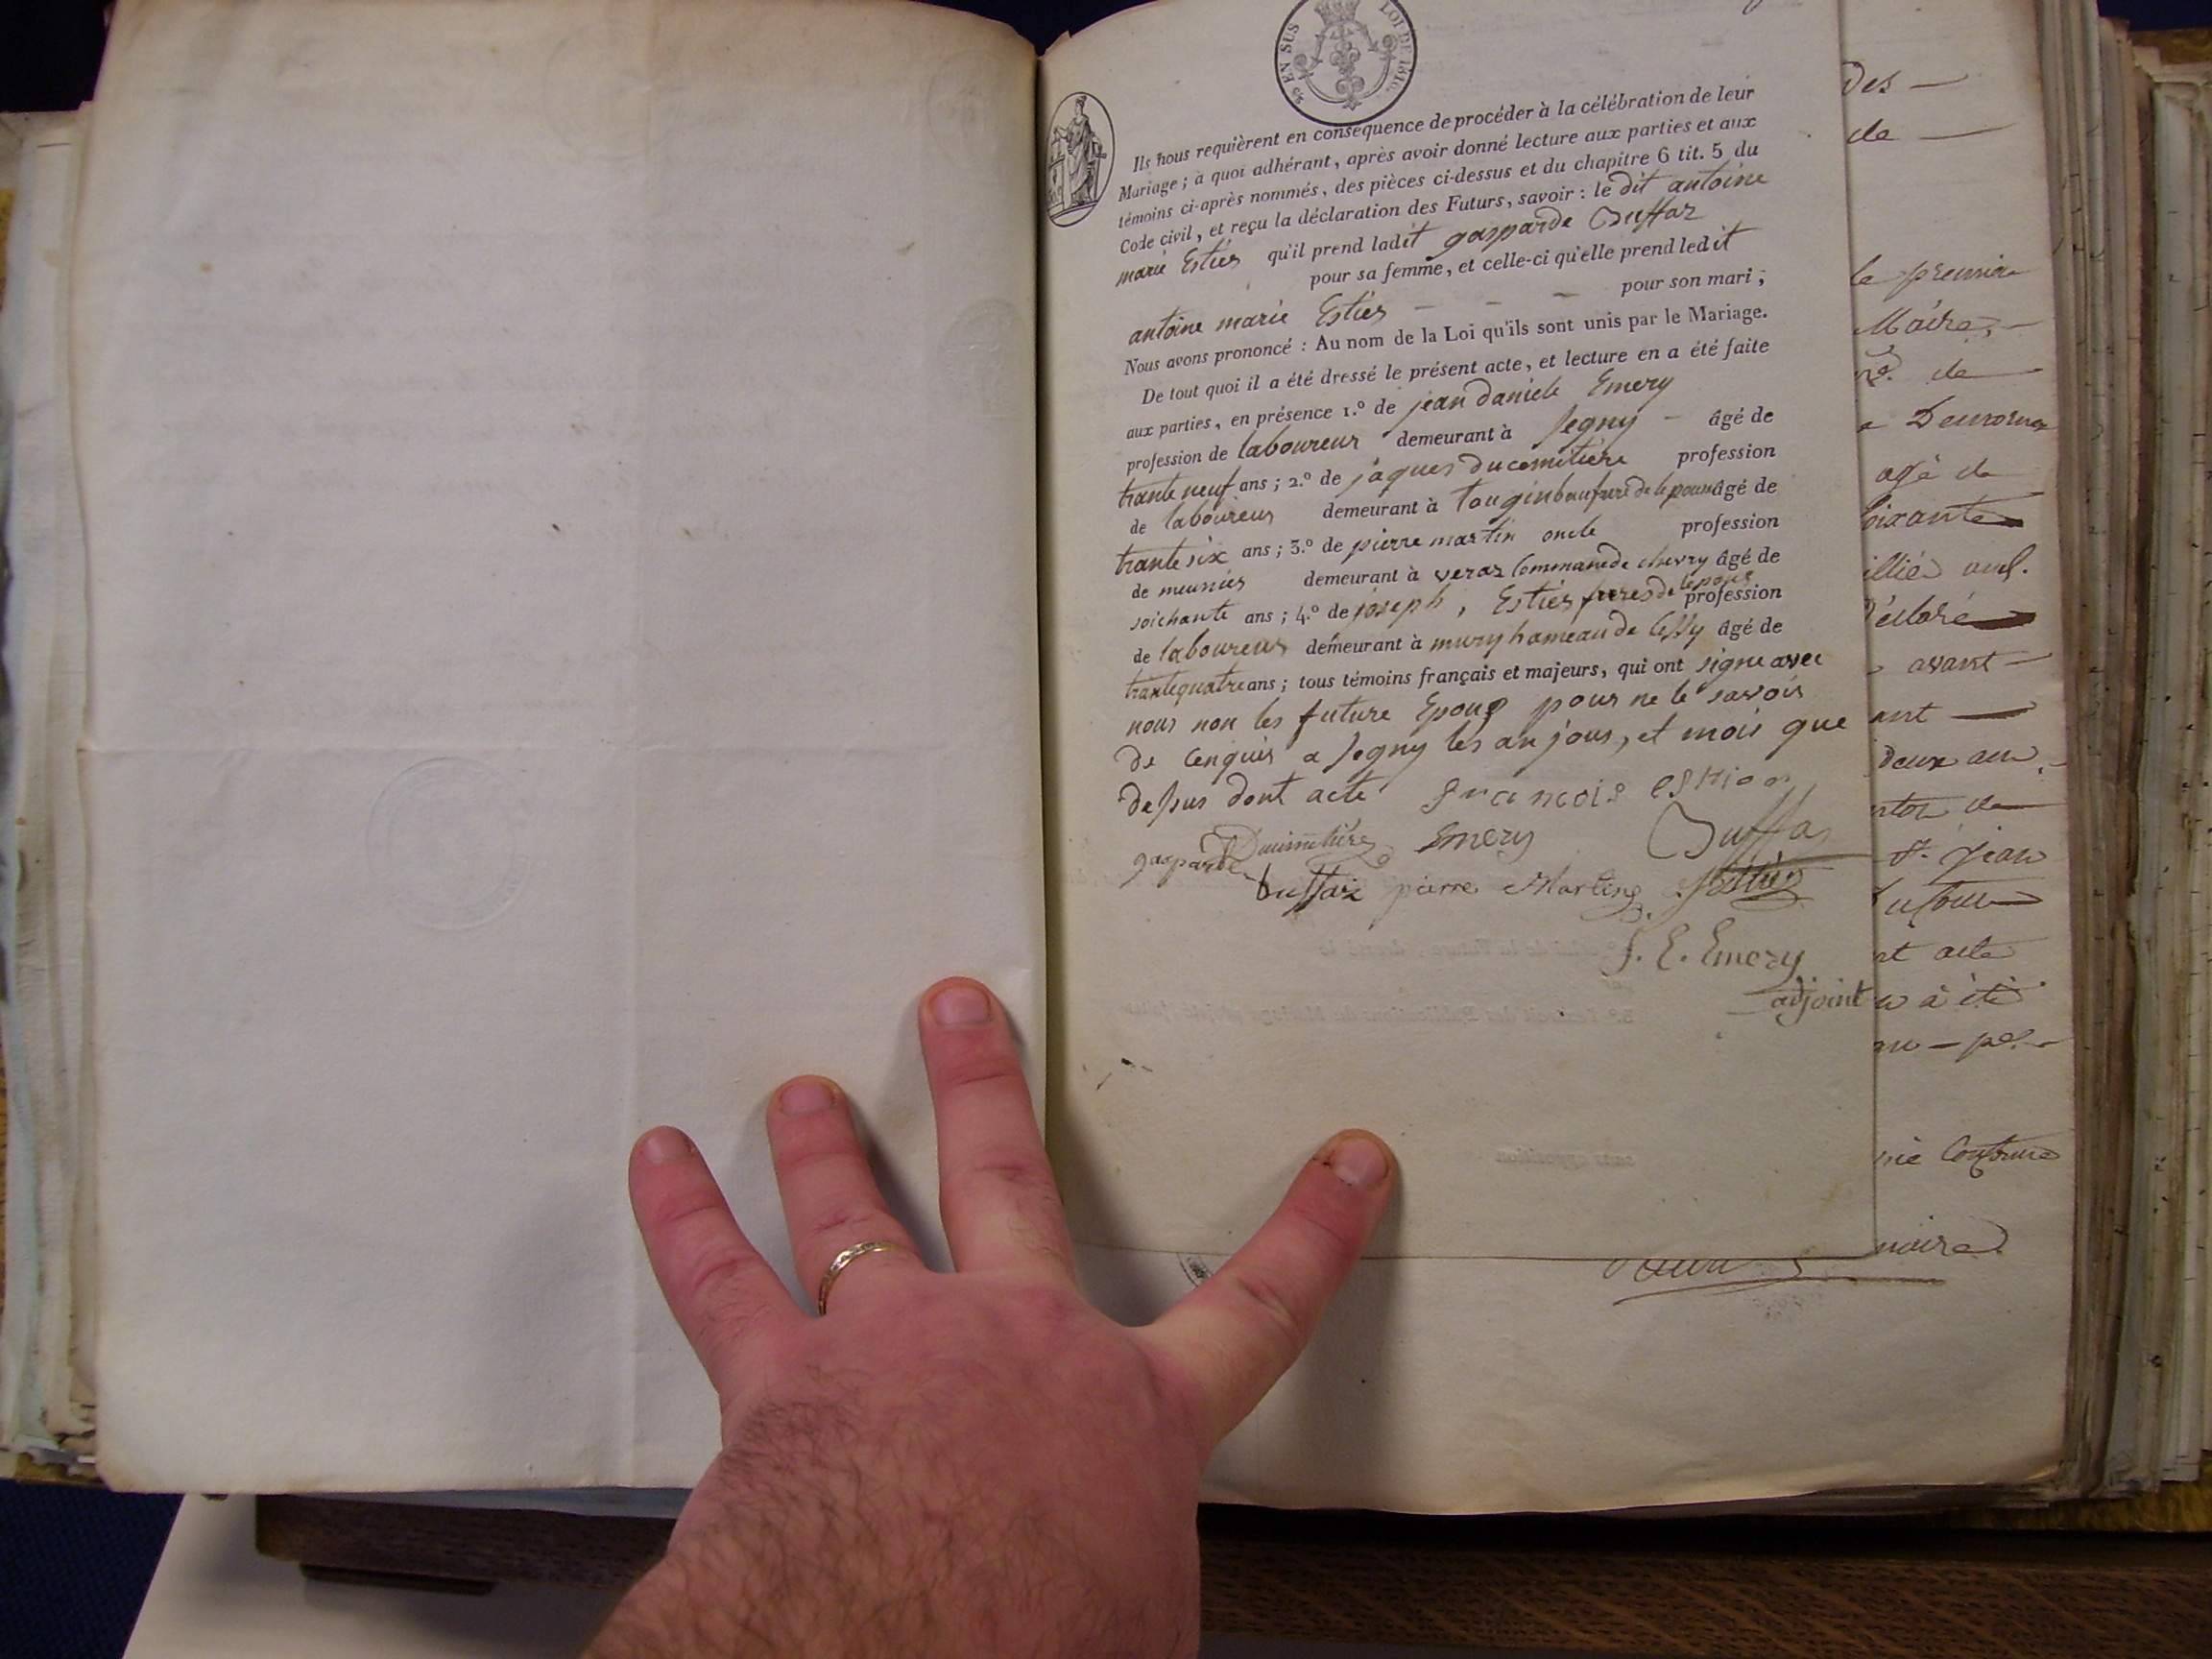 EN SUS
LOI DE 1816.
Ils nous requièrent en conséquence de procéder à la célébration de leur
Mariage ; à quoi adhérant, après avoir donné lecture aux parties et aux
témoins ci-après nommés, des pièces ci-dessus et du chapitre 6 tit. 5 du
Code civil, et reçu la déclaration des Futurs, savoir : le dit antoine
marie Estier qu'il prend ladit gasparde Duffaz
pour sa femme, et celle-ci qu'elle prend ledit
antoine marie Estier — — — pour son mari ;
Nous avons prononcé : Au nom de la Loi qu'ils sont unis par le Mariage.
De tout quoi il a été dressé le présent acte, et lecture en a été faite
aux parties, en présence 1.º de jean daniele Emery
profession de laboureur demeurant à Segny — âgé de
trante neuf ans ; 2.º de jaques ducemitiere profession
de laboureur demeurant à tougin beaufrere de lepouse âgé de
trante six ans ; 3.º de pierre martin oncle profession
de meunier demeurant à veraz Commune de chevry âgé de
soichante ans ; 4.º de joseph, Estier freres de lepoux profession
de laboureur demeurant à mury hameau de Cessy âgé de
trante quatre ans ; tous témoins français et majeurs, qui ont signe avec
nous non les future Epoux pour ne le savoir
de Cenquis a Segny les an jour, et mois que
desus dont acte francois estier
Ducimetiere Emery Duffaz
gasparde duffaiz pierre Martin Estier
J. E. Emery
adjoint
des —
de —
le premier
Maire, —
de —
agé de
soixante
avant —
deux an
St. Jean
acte
à été
maire